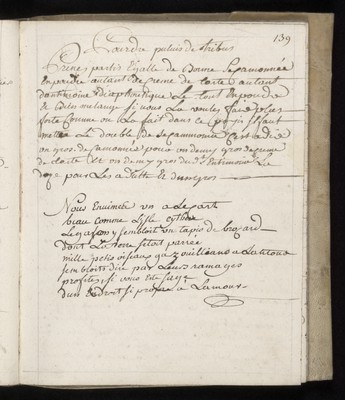 139
poudre
prenes partis Egalle de Bonne Scamonnée
en poudre autant de Creme de tarte autant
d'antimoine diaphoretique Le tout En poudre
& Bien melangé si vous La voulez faire plus
forte comme on La fait dans ce il faut
mettre Le double de scammonée C'est a dire
un gros de scamonée pour un demy gros de creme
de tarte Et un demy gros d'antimoine La
doze pour Les adultes Est d'un gros
Nous Envimes un a Lecart
beau comme L'isle
Le gason y sembloit un tapis de
dont La terre setoit parrée
mille petis oiseaux gazouillions a Lantour
sembloits dire par Leurs ramages
profites si vous ete sages
dun Endroit si propre a Lamour